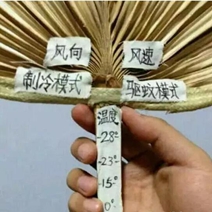 风向 风速
制冷模式 驱蚊模式
温度
-28°
-23°
-15°
0°